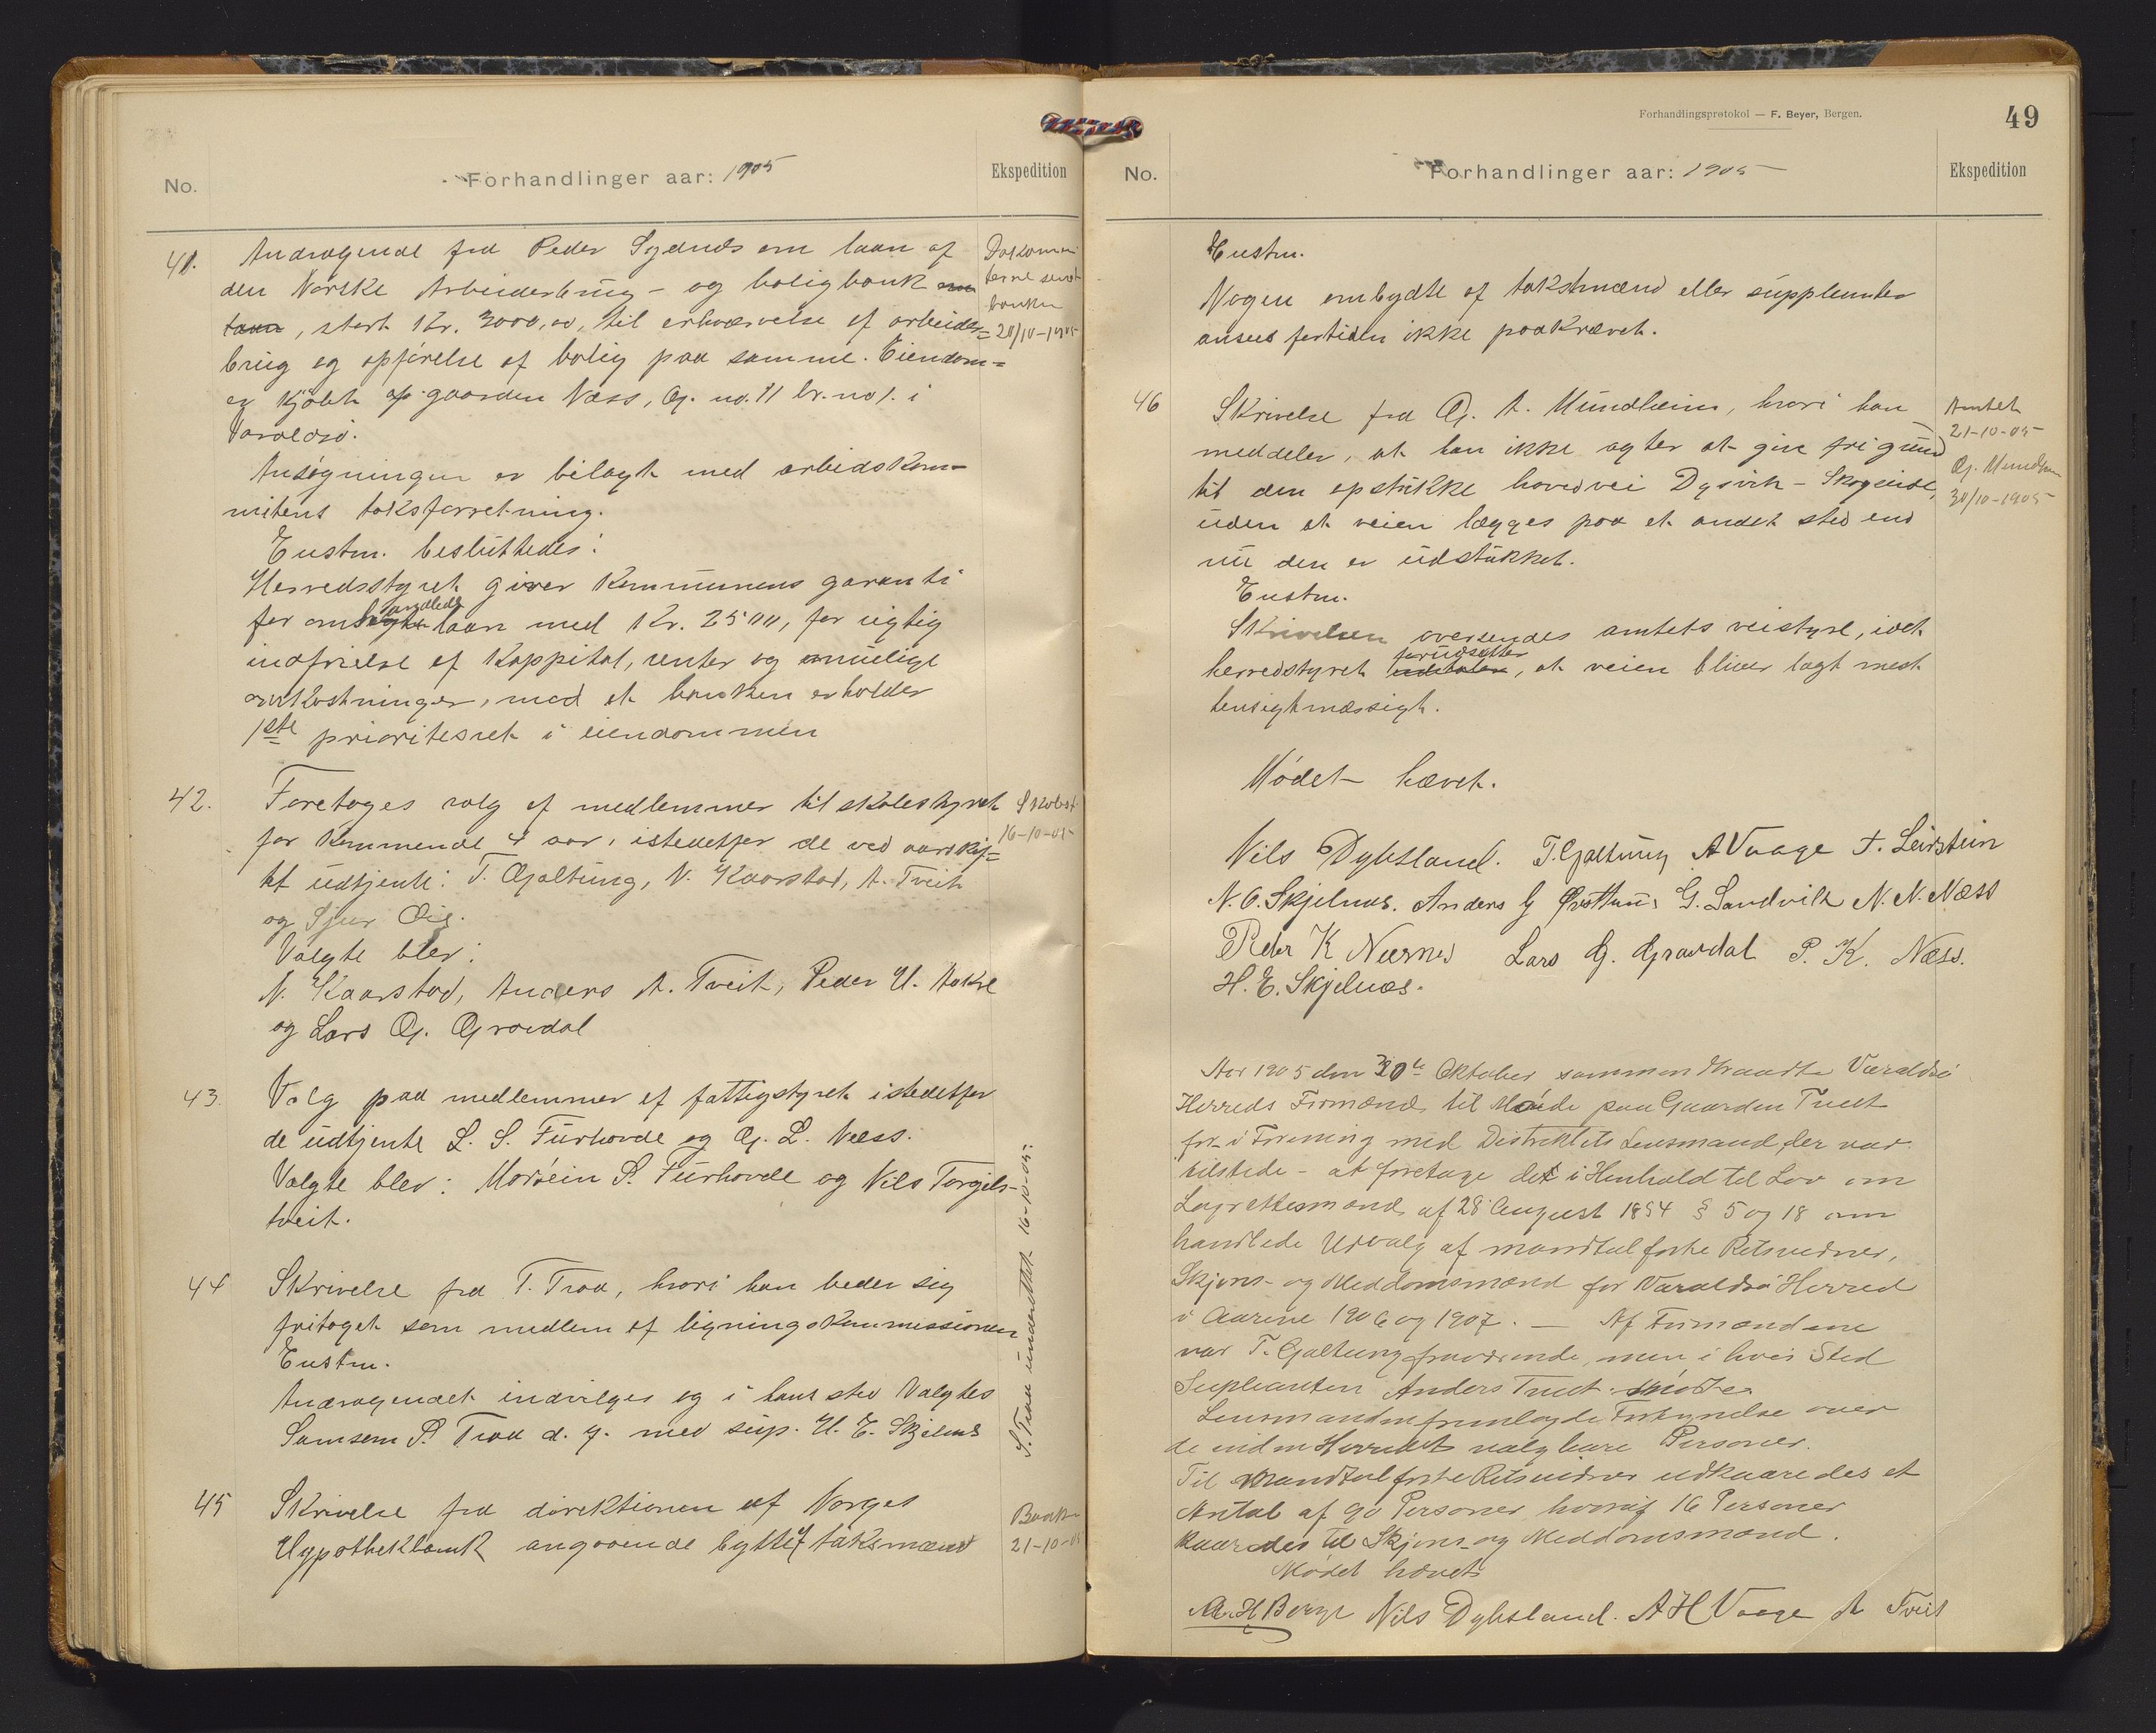 No.
Forhandlinger aar: 1905
Ekspedition
41.
Andragende fra Peder Sydnæs om laan af
den Norske Arbeiderbrug- og boligbank om
laan, stort Kr. 3000,00, til erhværvelse af arbeider=
brug og opførelse af bolig paa samme. Eiendom=
er kjøbt af gaarden Næss, G. no. 11 br. no 1. i
Varaldsø.
Ansøgningen er bilagt med arbeidskom-
mitens taksforretning.
Enstm. besluttedes:
Herredsstyret giver Kommunens garanti
for omhandlede laan med Kr. 2500, for rigtig
indfrielse af Kappital, renter og muelige
omkostninger, mod at banken erholder
1ste prioritesret i eiendommen
Dokomen
terne sendt
banken
20/10-1905
42.
Foretoges valg af medlemmer til skolestyret
for kommende 4 aar, istedetfor de ved aarsskif=
tet udtjente: T. Galtung, N. Kaarstad, A. Tveit
og Sjur Øie.
Valgte blev:
N. Kaarstad, Anders A. Tveit, Peder H. Aakre
og Lars G. Gravdal
Skolest.
16-10-05
43.
Valg paa medlemmer af fattigstyret istedetfor
de udtjente L. S. Furhovde og G. L. Næss.
Valgte blev: Mosvein P. Furhovde og Nils Torgils-
tveit.
44
Skrivelse fra T. Traa, hvori han beder sig
fritaget som medlem af ligningskommissionen
Enstm.
Andragendet indvilges og i hans sted valgtes
Samsem P. Traa d. y. med sup. H. E. Skjelnæs
S. Traa underrettet 16-10-05.
45
Skrivelse fra direktionen af Norges
Hypothekbank angaaende bytte af taksmænd
Banken
21-10-05
Forhandlingsprotokol — F. Beyer, Bergen.
49
No.
Forhandlinger aar: 1905
Ekspedition
Enstm.
Nogen ombydte af takstmænd eller supplemter
ansees fortiden ikke paakrævet.
46
Skrivelse fra G. A. Mundheim, hvori han
meddeler, at han ikke agter at give fri grund
til den opstukke hovedvei Dysvik - Skogseide,
uden at veien lægges paa et andet sted end
nu den er udstukket.
Enstm.
Skrivelsen oversendes amtets veistyre, idet
herredstyret forudsætter, at veien bliver lagt mest
hensigtmæssigt.
Amtet
21-10-05
G. Mundheim
30/10-1905
Mødet hævet.
Nils Dybsland. T. Galtung A Vaage T. Leirstein
N. O. Skjelnæs. Anders G Øvsthus G. Sandvik N. N. Næss
Peder K Nernes Lars G. Gravdal P. K. Næss.
H. E. Skjelnæs.
Aar 1905 den 30te Oktober sammentraadte Varaldsø
Herreds Formænd til Møde paa Gaarden Tveit
for i Forening med Distriktets Lensmand, der var
tilstede - at foretage det i Henhold til Lov om
Lagrettesmænd af 28 August 1854 § 5 og 18 om
handlede Udvalg af mandtalførte Retsvidner,
Skjøns- og Meddomsmænd for Varaldsø Herred
i Aarene 1906 og 1907. — Af Formændene
var T. Galtung fraværende, men i hvis Sted
Supleanten Anders Tveit mødte.
Lensmanden fremlagde Fortegnelse over
de inden Herredet valgbare Personer.
Til mandtalførte Retsvidner udkaaredes et
Antal af 90 Personer hvoraf 16 Personer
kaaredes til Skjøns- og Meddomsmænd.
Mødet hævet
M. H Berge Nils Dybsland. A H Vaage A Tveit